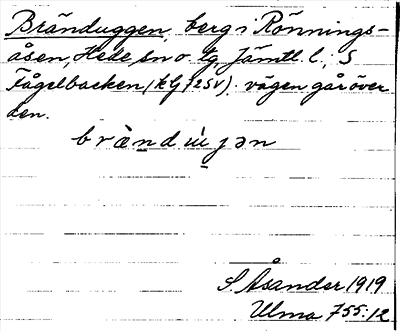 Bränduggen, berg i Rönnings-
åsen, Hede sn o tg, Jämtl. l., S
Fågelbacken (klj 125v). vägen går över
den.
brä̀ndùjən
S. Åsander 1919
Ulma 755:12